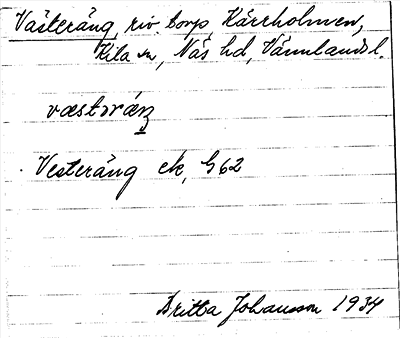 Västeräng, riv. torp, Kärrholmen,
Kila sn, Näs hd, Värmlands l.
væstəræŋ
Vesteräng ek, G62
Britta Johansson 1934